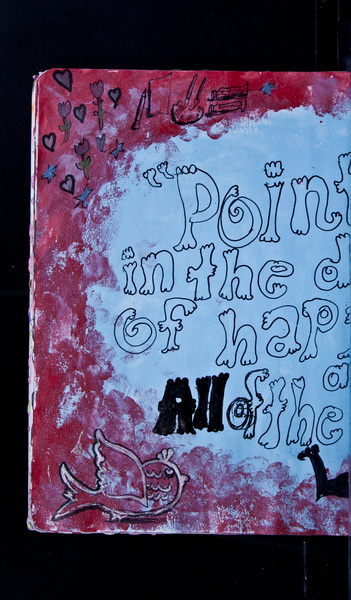 "Point
in the d
of hap
a
All of the